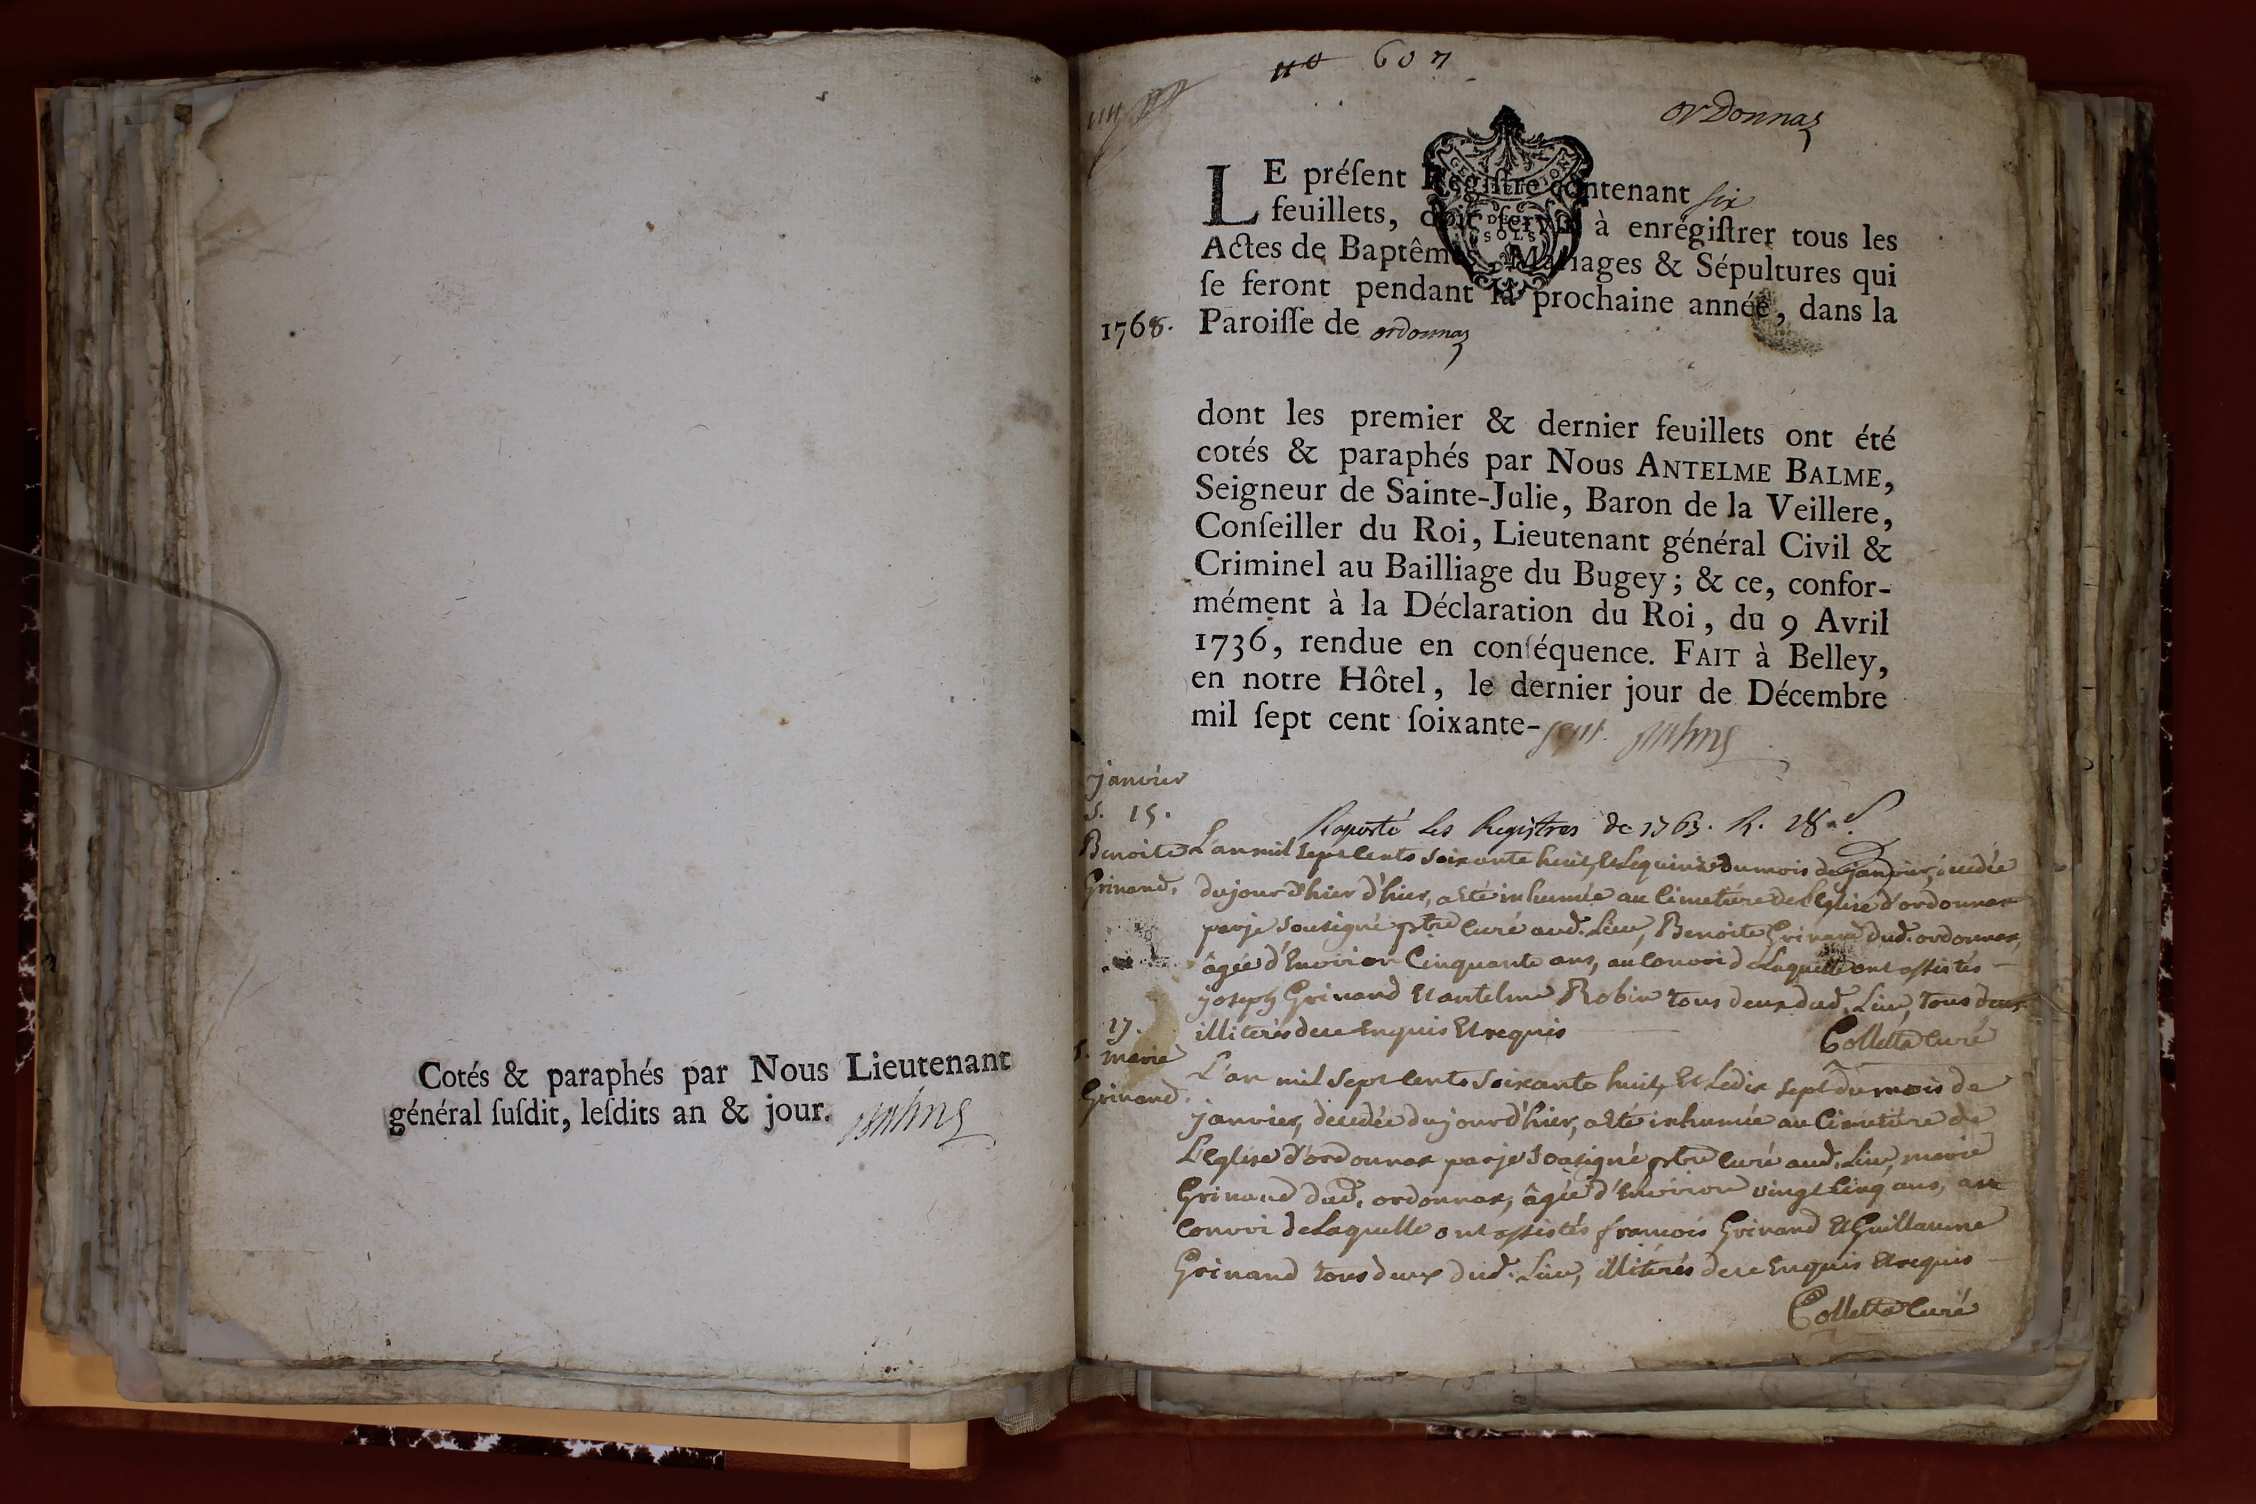 Cotés & paraphés par Nous Lieutenant
général ſuſdit, leſdits an & jour.
no 607
ordonnaz
LE préſent Regiſtre contenant ſix
feuillets, doit ſervir à enrégiſtrer tous les
Actes de Baptêmes, Mariages & Sépultures qui
ſe feront pendant la prochaine année, dans la
1768. Paroiſſe de ordonnaz
dont les premier & dernier feuillets ont été
cotés & paraphés par Nous ANTELME BALME,
Seigneur de Sainte-Julie, Baron de la Veillere,
Conſeiller du Roi, Lieutenant général Civil &
Criminel au Bailliage du Bugey; & ce, confor-
mément à la Déclaration du Roi, du 9 Avril
1736, rendue en conſéquence. FAIT à Belley,
en notre Hôtel, le dernier jour de Décembre
mil ſept cent ſoixante-ſept.
janvier
S. 15.
Raporté les Registres de
Benoite
Grinand.
L'an mil sept cents soixante huit, et le quinze du mois de janvier, décédée
du jour d'hier d'hier, a été inhumée au cimetière de l'église d'ordonnax
par je sousigné ptre curé aud. lieu, Benoite Grinand dud. ordonnax,
âgée d'environ cinquante ans, au convoi de laquelle ont assistés
joseph Grinand et antelme Robin tous deux dud. lieu, tous deux
illiterés de ce enquis et requis
Colletta curé
17.
S. marie
Grinand.
L'an mil sept cents soixante huit, et le dix sept du mois de
janvier, decedée du jour d'hier, a été inhumée au cimetière de
L'eglise d'ordonnax par je sousigné ptre curé aud. lieu, marie
Grinand dud. ordonnax, âgée d'environ vingt cinq ans, au
convoi de laquelle ont assistés francois Grinand et Guillaume
Grinand tous deux dud. lieu, illiterés de ce enquis et requis
Colletta curé